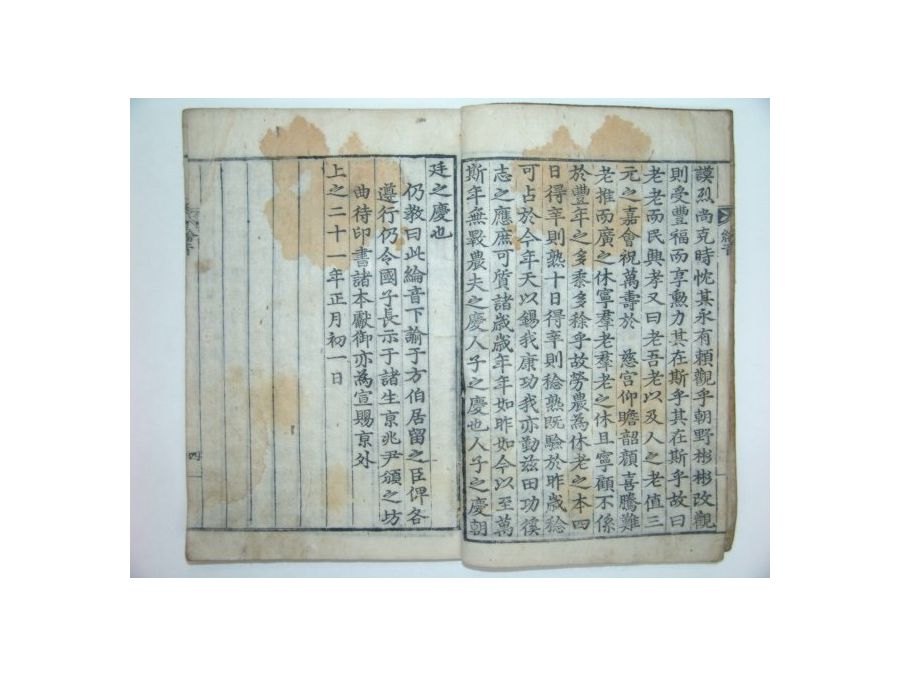 謨烈尚克時忱其永有賴觀乎朝野彬彬改觀
則受豐福而享勳力其在斯乎其在斯乎故曰
老老而民興孝又曰老吾老以及人之老值三
元之嘉會祝萬壽於 慈宮仰瞻韶顏喜騰難
老推而廣之休寧羣老羣老之休且寧顧不係
於豐年之多黍多稌乎故勞農為休老之本四
日得辛則熟十日得辛則稔熟既驗於昨歲稔
可占於今年天以錫我康功我亦勤玆田功徯
志之應庶可質諸歲歲年年如昨如今以至萬
斯年無斁農夫之慶人子之慶也人子之慶朝
廷之慶也
仍教曰此綸音下諭于方伯居留之臣俾各
遵行仍令國子長示于諸生京兆尹頒之坊
曲待印書諸本獻御亦為宣賜京外
上之二十一年正月初一日
綸音
四